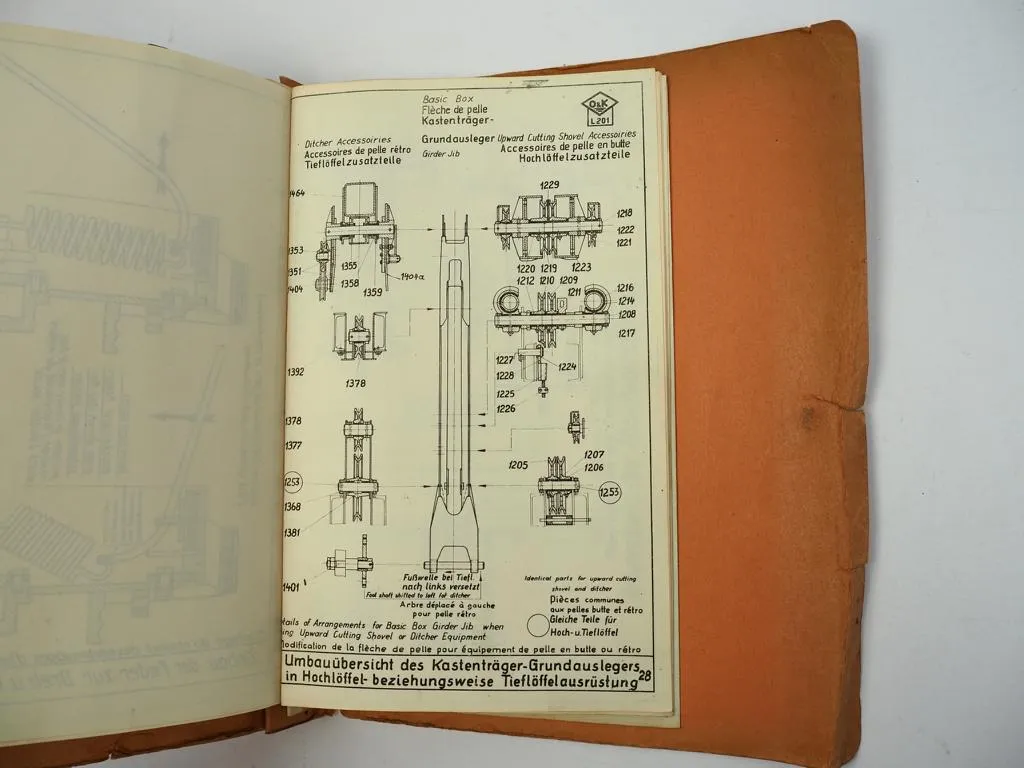 Basic Box
Flèche de pelle
Kastenträger-
Grundausleger
Girder Jib
O&K
L 201
Ditcher Accessoiries
Accessoires de pelle rétro
Tieflöffelzusatzteile
Upward Cutting Shovel Accessoiries
Accessoires de pelle en butte
Hochlöffelzusatzteile
1464
1353
1351
1404
1355
1358
1359
1404a
1229
1218
1222
1221
1220 1219 1223
1212 1210 1209
1211
1216
1214
1208
1217
1392
1378
1227
1228
1225
1226
1224
1378
1377
1253
1368
1381
1205
1207
1206
1253
1401
Fußwelle bei Tiefl.
nach links versetzt
Foot shaft shifted to left for ditcher
Arbre déplacé à gauche
pour pelle rétro
Identical parts for upward cutting
shovel and ditcher
Pièces communes
aux pelles butte et rétro
Gleiche Teile für
Hoch-u.Tieflöffel
tails of Arrangements for Basic Box Girder Jib when
ing Upward Cutting Shovel or Ditcher Equipment
odification de la flèche de pelle pour équipement de pelle en butte ou rétro
Umbauübersicht des Kastenträger-Grundauslegers
in Hochlöffel- beziehungsweise Tieflöffelausrüstung
28